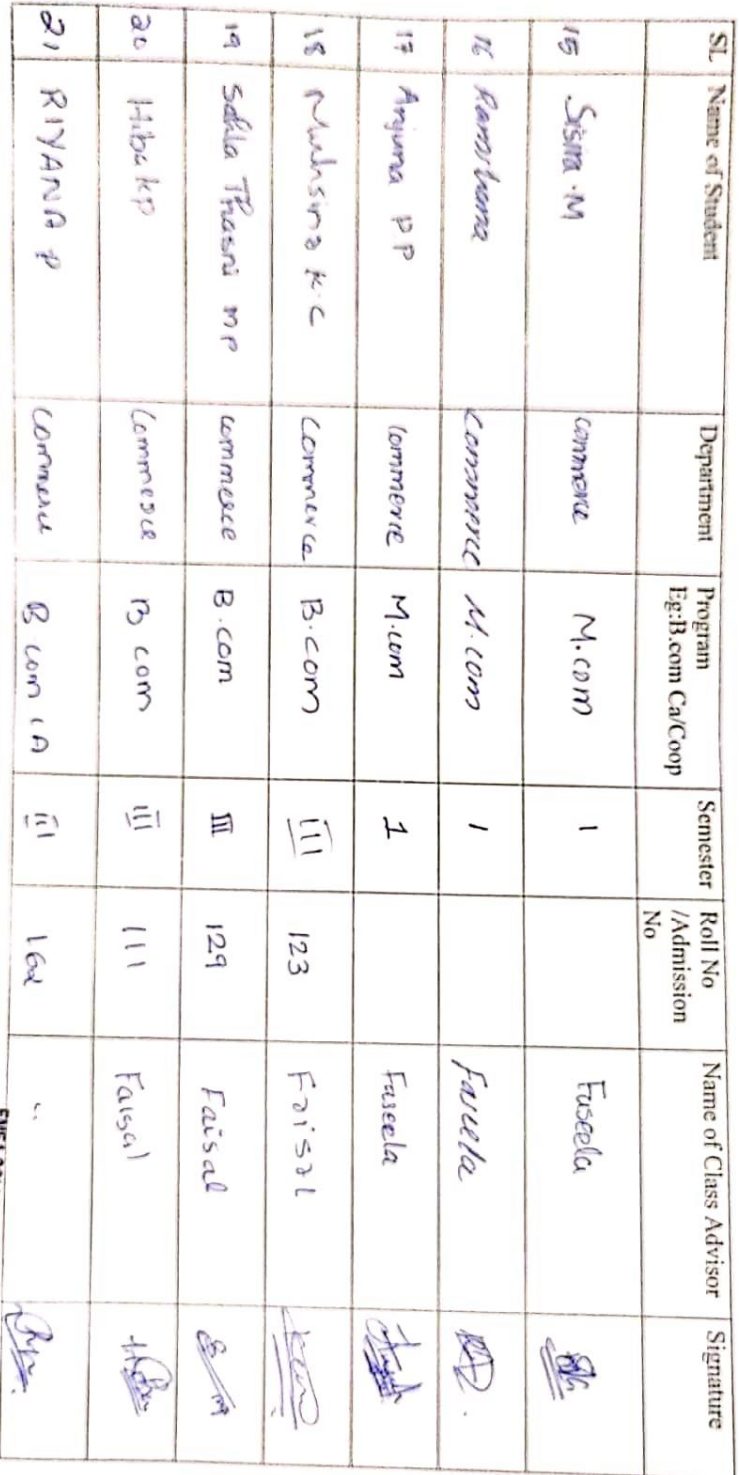 SL Name of Student Department Program Eg:B.com Ca/Coop Semester Roll No /Admission No Name of Class Advisor Signature
15 Sisna.M commerce M.com 1 Fuseela
16 commerce M.com 1 Fuseela
17 Anjuna PP commerce M.com 1 Fuseela
18 Muhsina K.C Commerce B.com III 123 Faisal
19 Sahla Thasni MP commerce B.com III 129 Faisal
20 Hiba KP Commerce B com III 111 Faisal
21 RIYANA P commerce B com CA III 162 "